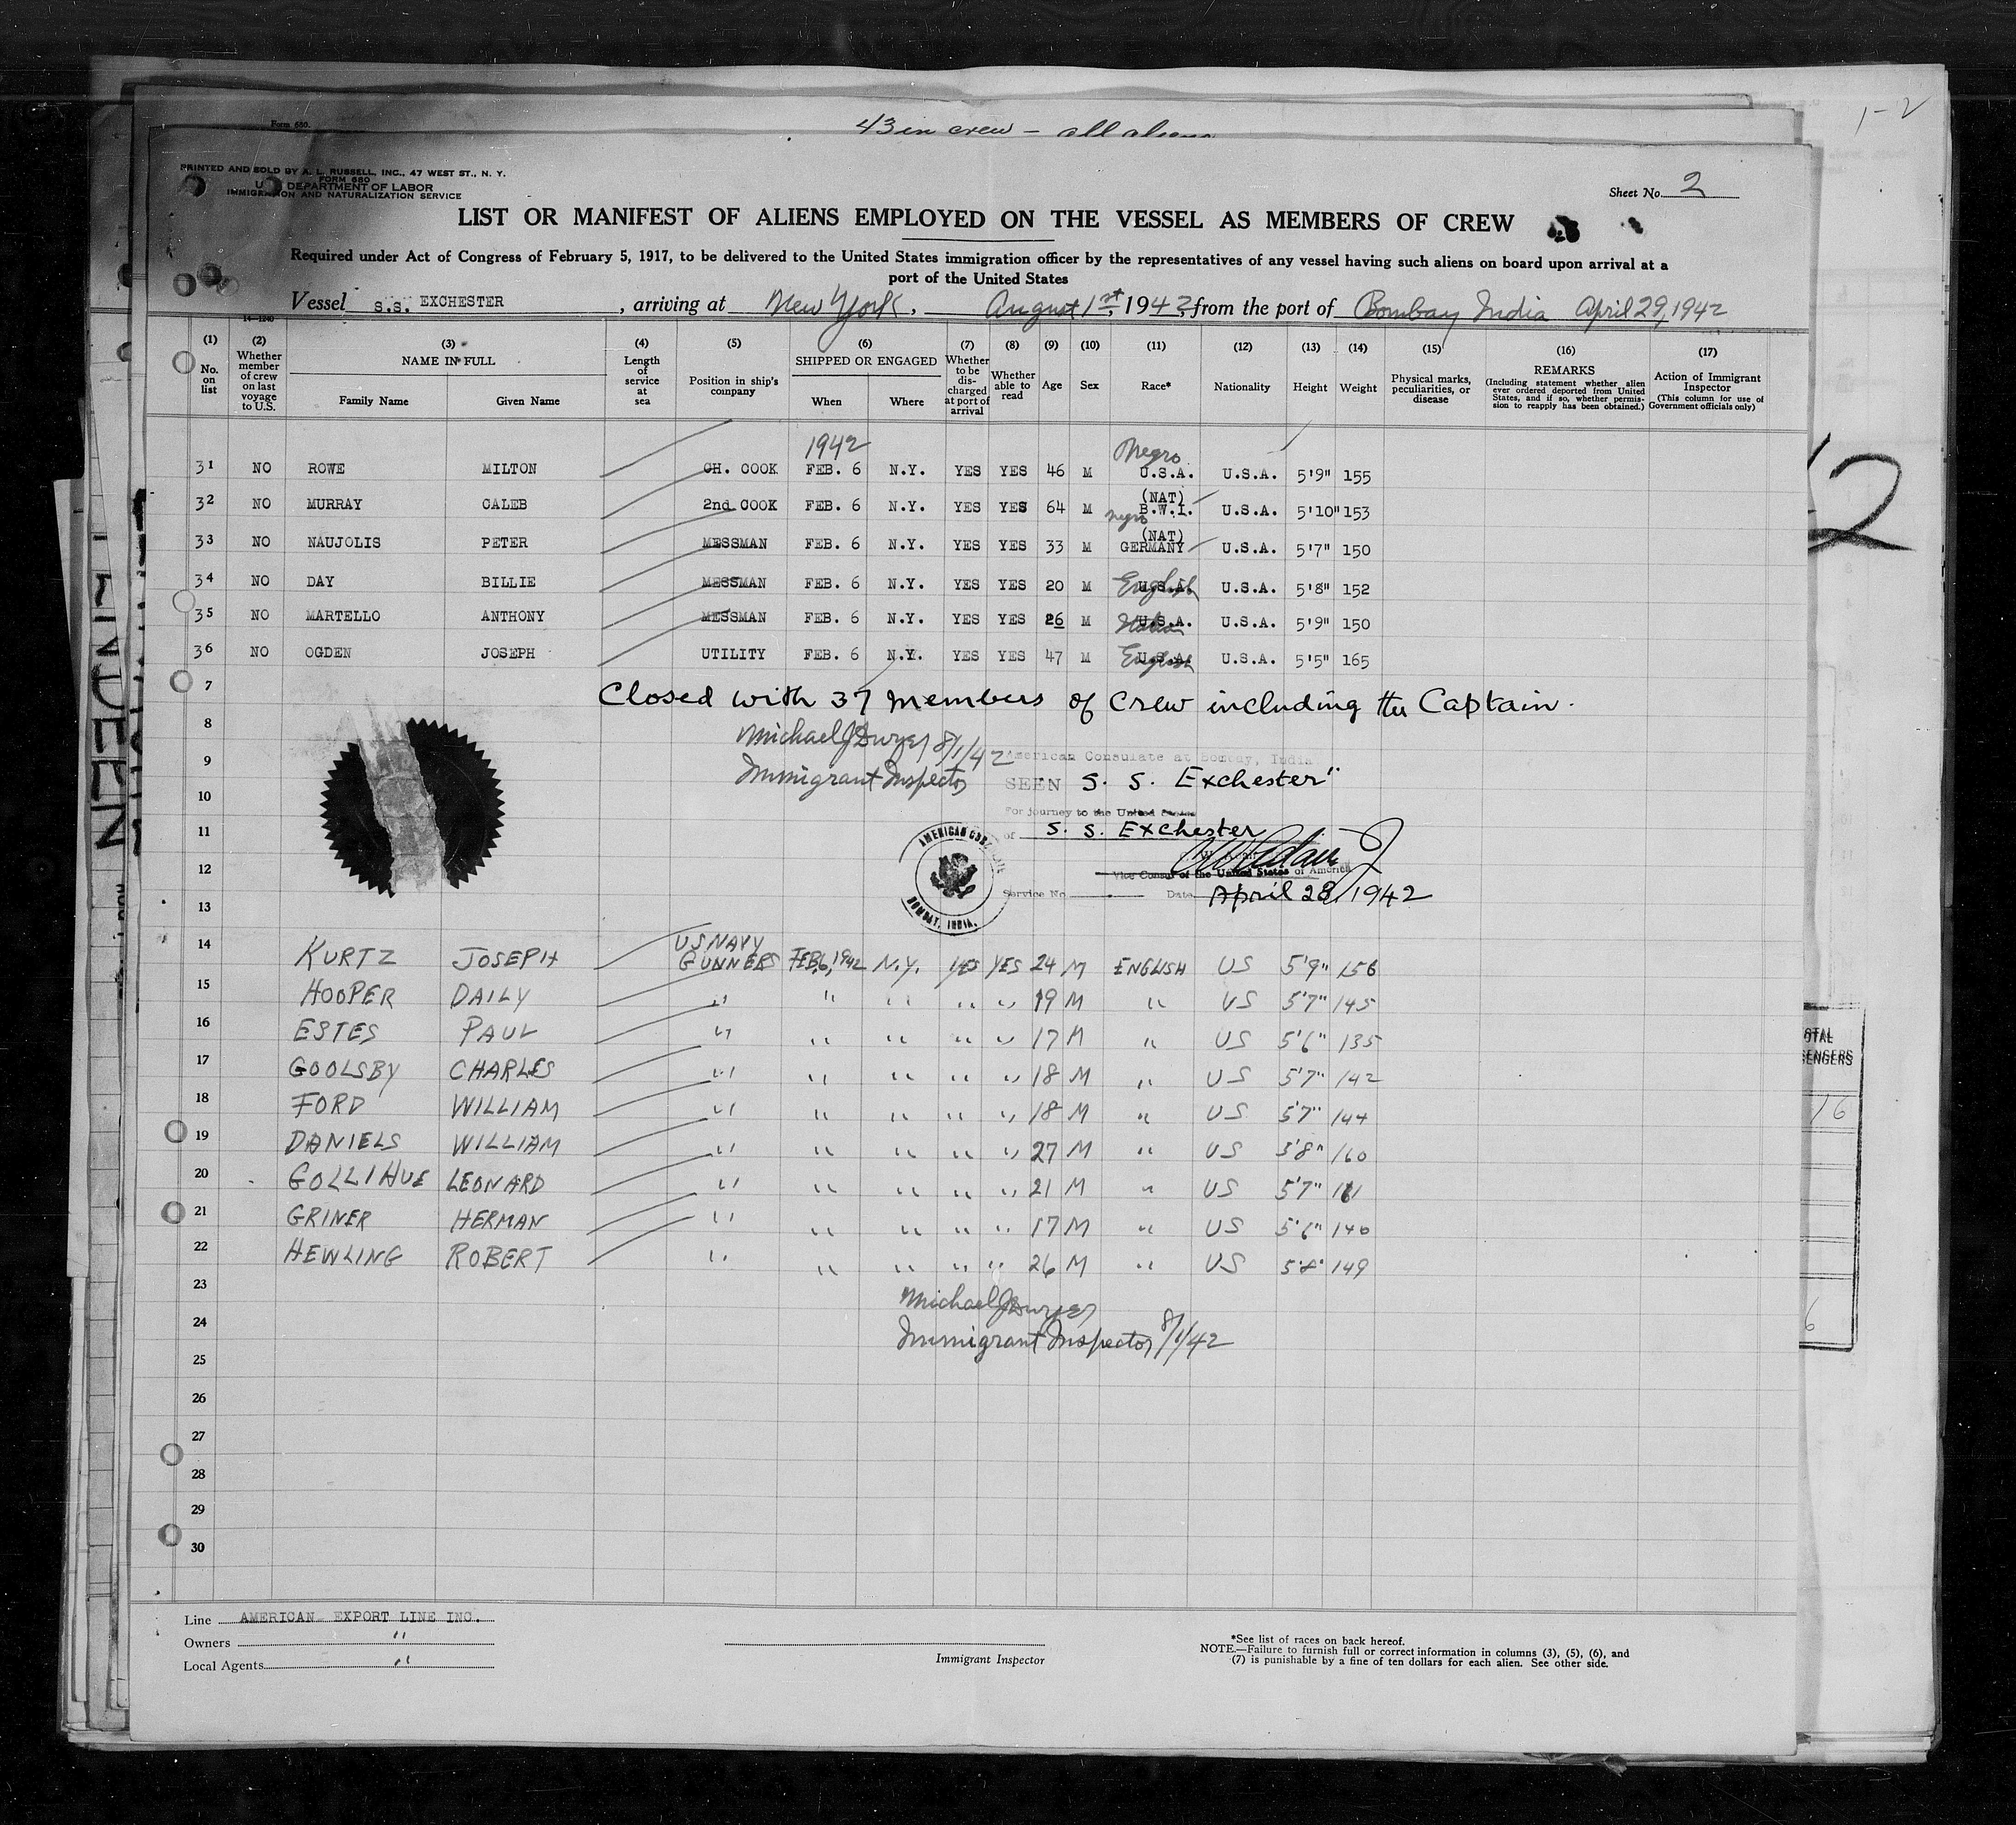 Form 680.
43 in crew – all aliens
1-2
PRINTED AND SOLD BY A. L. RUSSELL, INC., 47 WEST ST., N. Y.
FORM 680
U. S. DEPARTMENT OF LABOR
IMMIGRATION AND NATURALIZATION SERVICE
Sheet No. 2
LIST OR MANIFEST OF ALIENS EMPLOYED ON THE VESSEL AS MEMBERS OF CREW
Required under Act of Congress of February 5, 1917, to be delivered to the United States immigration officer by the representatives of any vessel having such aliens on board upon arrival at a
port of the United States
Vessel S.S. EXCHESTER, arriving at New York, August 1st, 1942, from the port of Bombay India April 29, 1942
14-1240
(1) No. on list
(2) Whether member of crew on last voyage to U.S.
(3) NAME IN FULL Family Name Given Name
(4) Length of service at sea
(5) Position in ship's company
(6) SHIPPED OR ENGAGED When Where
(7) Whether to be discharged at port of arrival
(8) Whether able to read
(9) Age
(10) Sex
(11) Race*
(12) Nationality
(13) Height
(14) Weight
(15) Physical marks, peculiarities, or disease
(16) REMARKS (Including statement whether alien ever ordered deported from United States, and if so, whether permission to reapply has been obtained.)
(17) Action of Immigrant Inspector (This column for use of Government officials only)
1942 Negro
31 NO ROWE MILTON CH. COOK FEB. 6 N.Y. YES YES 46 M U.S.A. U.S.A. 5'9" 155
(NAT)
32 NO MURRAY CALEB 2nd COOK FEB. 6 N.Y. YES YES 64 M negro B.W.I. U.S.A. 5'10" 153
(NAT)
33 NO NAUJOLIS PETER MESSMAN FEB. 6 N.Y. YES YES 33 M GERMANY U.S.A. 5'7" 150
34 NO DAY BILLIE MESSMAN FEB. 6 N.Y. YES YES 20 M U.S.A. English U.S.A. 5'8" 152
35 NO MARTELLO ANTHONY MESSMAN FEB. 6 N.Y. YES YES 26 M U.S.A. Italian U.S.A. 5'9" 150
36 NO OGDEN JOSEPH UTILITY FEB. 6 N.Y. YES YES 47 M U.S.A. English U.S.A. 5'5" 165
7 Closed with 37 members of crew including the Captain.
8 Michael J Dwyer 8/1/42
9 Immigrant Inspector
American Consulate at Bombay, India
SEEN S. S. Exchester"
10
For journey to the United States
11 of S. S. Exchester
AMERICAN CONSULATE BOMBAY, INDIA.
12 Vice Consul of the United States of America
Service No. Date April 28, 1942
13
14 KURTZ JOSEPH US NAVY GUNNERS FEB 6, 1942 N.Y. YES YES 24 M ENGLISH US 5'9" 156
15 HOOPER DAILY " " " " " 19 M " US 5'7" 145
16 ESTES PAUL " " " " " 17 M " US 5'6" 135
17 GOOLSBY CHARLES " " " " " 18 M " US 5'7" 142
18 FORD WILLIAM " " " " " 18 M " US 5'7" 144
19 DANIELS WILLIAM " " " " " 27 M " US 5'8" 160
20 GOLLIHUE LEONARD " " " " " 21 M " US 5'7" 161
21 GRINER HERMAN " " " " " 17 M " US 5'6" 140
22 HEWLING ROBERT " " " " " 26 M " US 5'8" 149
23 Michael J Dwyer
24 Immigrant Inspector 8/1/42
25
26
27
28
29
30
Line AMERICAN EXPORT LINE INC.
Owners "
Local Agents "
Immigrant Inspector
*See list of races on back hereof.
NOTE.—Failure to furnish full or correct information in columns (3), (5), (6), and
(7) is punishable by a fine of ten dollars for each alien. See other side.
LINDEN
16
6